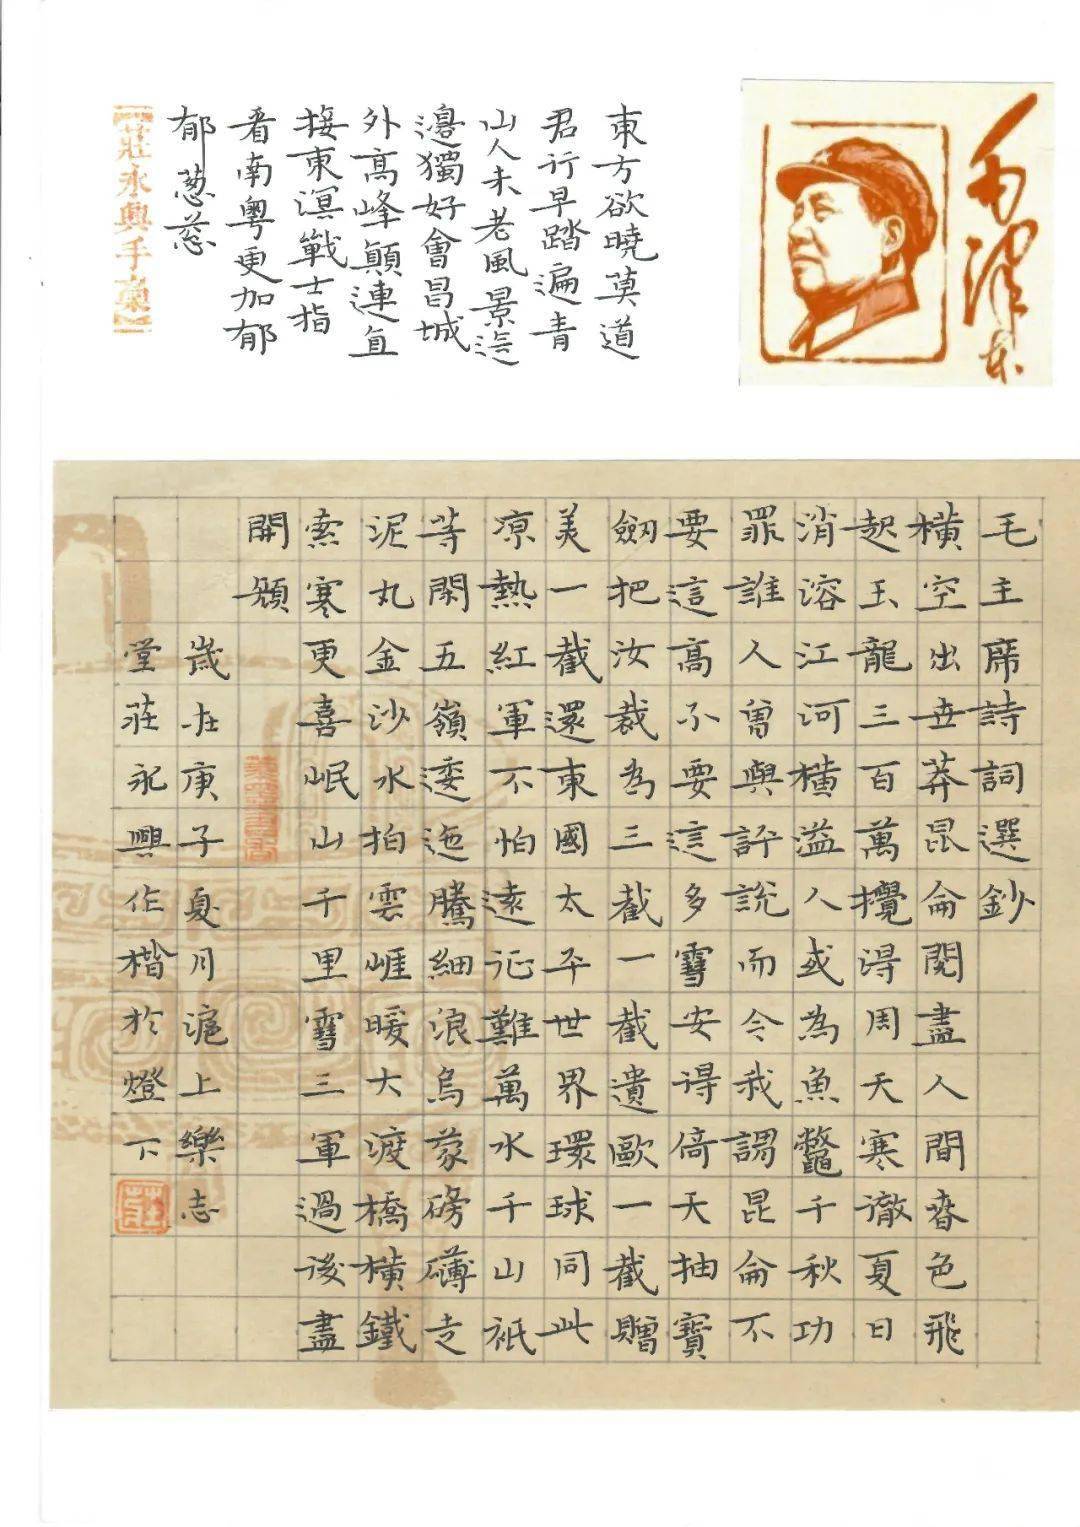 毛泽东
東方欲曉莫道
君行早踏遍青
山人未老風景這
邊獨好會昌城
外高峰顛連直
接東溟戰士指
看南粵更加郁
郁葱葱
莊永興手稾
毛主席詩詞選鈔
橫空出世莽昆侖閱盡人間春色飛
起玉龍三百萬攪得周天寒徹夏日
消溶江河橫溢人或為魚鼈千秋功
罪誰人曾與評說而今我謂昆侖不
要這高不要這多雪安得倚天抽寶
劒把汝裁為三截一截遺歐一截贈
美一截還東國太平世界環球同此
涼熱紅軍不怕遠征難萬水千山祇
等閑五嶺逶迤騰細浪烏蒙磅礴走
泥丸金沙水拍雲崖暖大渡橋橫鐵
索寒更喜岷山千里雪三軍過後盡
開顏
歲在庚子夏月滬上樂志
堂莊永興作楷於燈下
莊